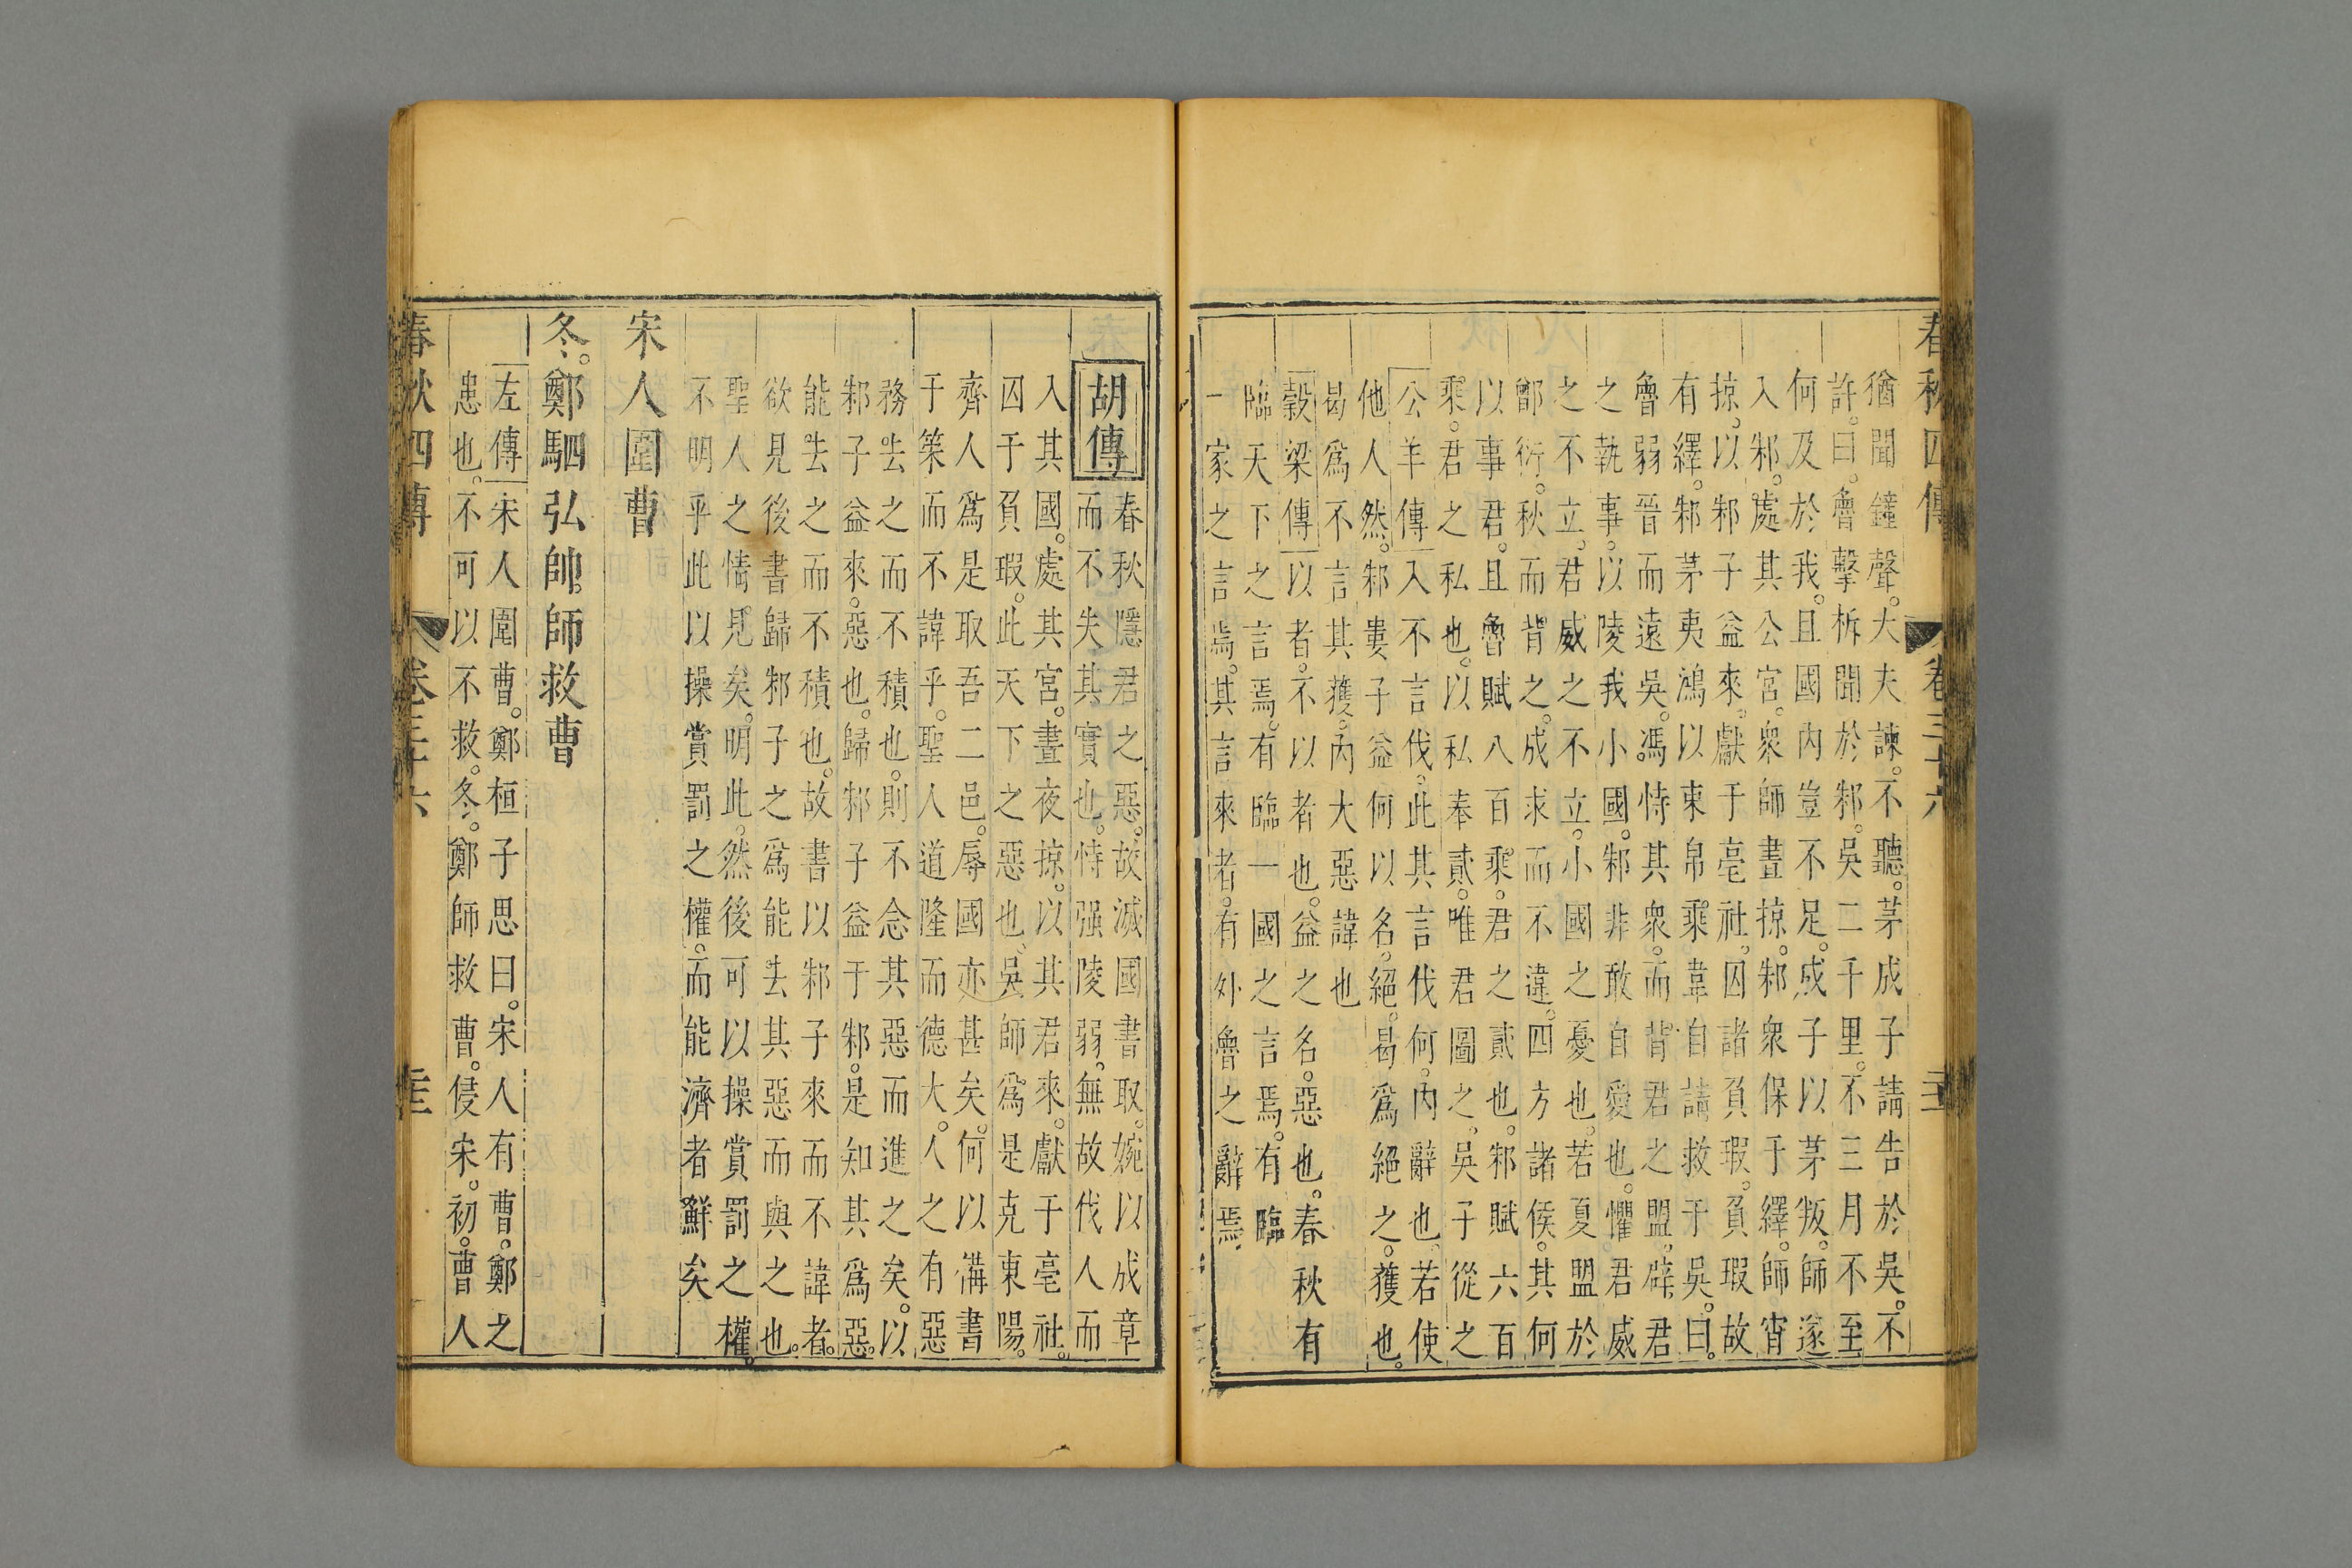 春秋四傳 卷三十六
猶聞鐘聲。大夫諫。不聽。茅成子請告於吳。不
許。曰。魯擊柝聞於邾。吳二千里。不三月不至
何及於我。且國內豈不足。成子以茅叛。師遂
入邾。處其公宮。衆師晝掠。邾衆保于繹。師宵
掠。以邾子益來。獻于亳社。囚諸負瑕。負瑕故
有繹。邾茅夷鴻以束帛乘韋自請救于吳。曰。
魯弱晉而遠吳。馮恃其衆。而背君之盟。辟君
之執事。以陵我小國。邾非敢自愛也。懼君威
之不立。君威之不立。小國之憂也。若夏盟於
鄫衍。秋而背之。成求而不違。四方諸侯。其何
以事君。且魯賦八百乘。君之貳也。邾賦六百
乘。君之私也。以私奉貳。唯君圖之。吳子從之
公羊傳 入不言伐。此其言伐何。內辭也。若使
他人然。邾婁子益何以名。絕。曷爲絕之。獲也。
曷爲不言其獲。內大惡諱也
穀梁傳 以者。不以者也。益之名。惡也。春秋有
臨天下之言焉。有臨一國之言焉。有臨
一家之言焉。其言來者。有外魯之辭焉
胡傳 春秋隱君之惡。故滅國書取。婉以成章
而不失其實也。恃强陵弱。無故伐人而
入其國。處其宮。晝夜掠。以其君來。獻于亳社。
囚于負瑕。此天下之惡也。吳師爲是克東陽。
齊人爲是取吾二邑。辱國亦甚矣。何以備書
于策而不諱乎。聖人道隆而德大。人之有惡
務去之而不積也。則不念其惡而進之矣。以
邾子益來。惡也。歸邾子益于邾。是知其爲惡。
能去之而不積也。故書以邾子來而不諱者。
欲見後書歸邾子之爲能去其惡而與之也。
聖人之情見矣。明此。然後可以操賞罰之權。
不明乎此以操賞罰之權。而能濟者鮮矣
宋人圍曹
冬。鄭駟弘帥師救曹
左傳 宋人圍曹。鄭桓子思曰。宋人有曹。鄭之
患也。不可以不救。冬。鄭師救曹。侵宋。初。曹人
春秋四傳 卷三十六